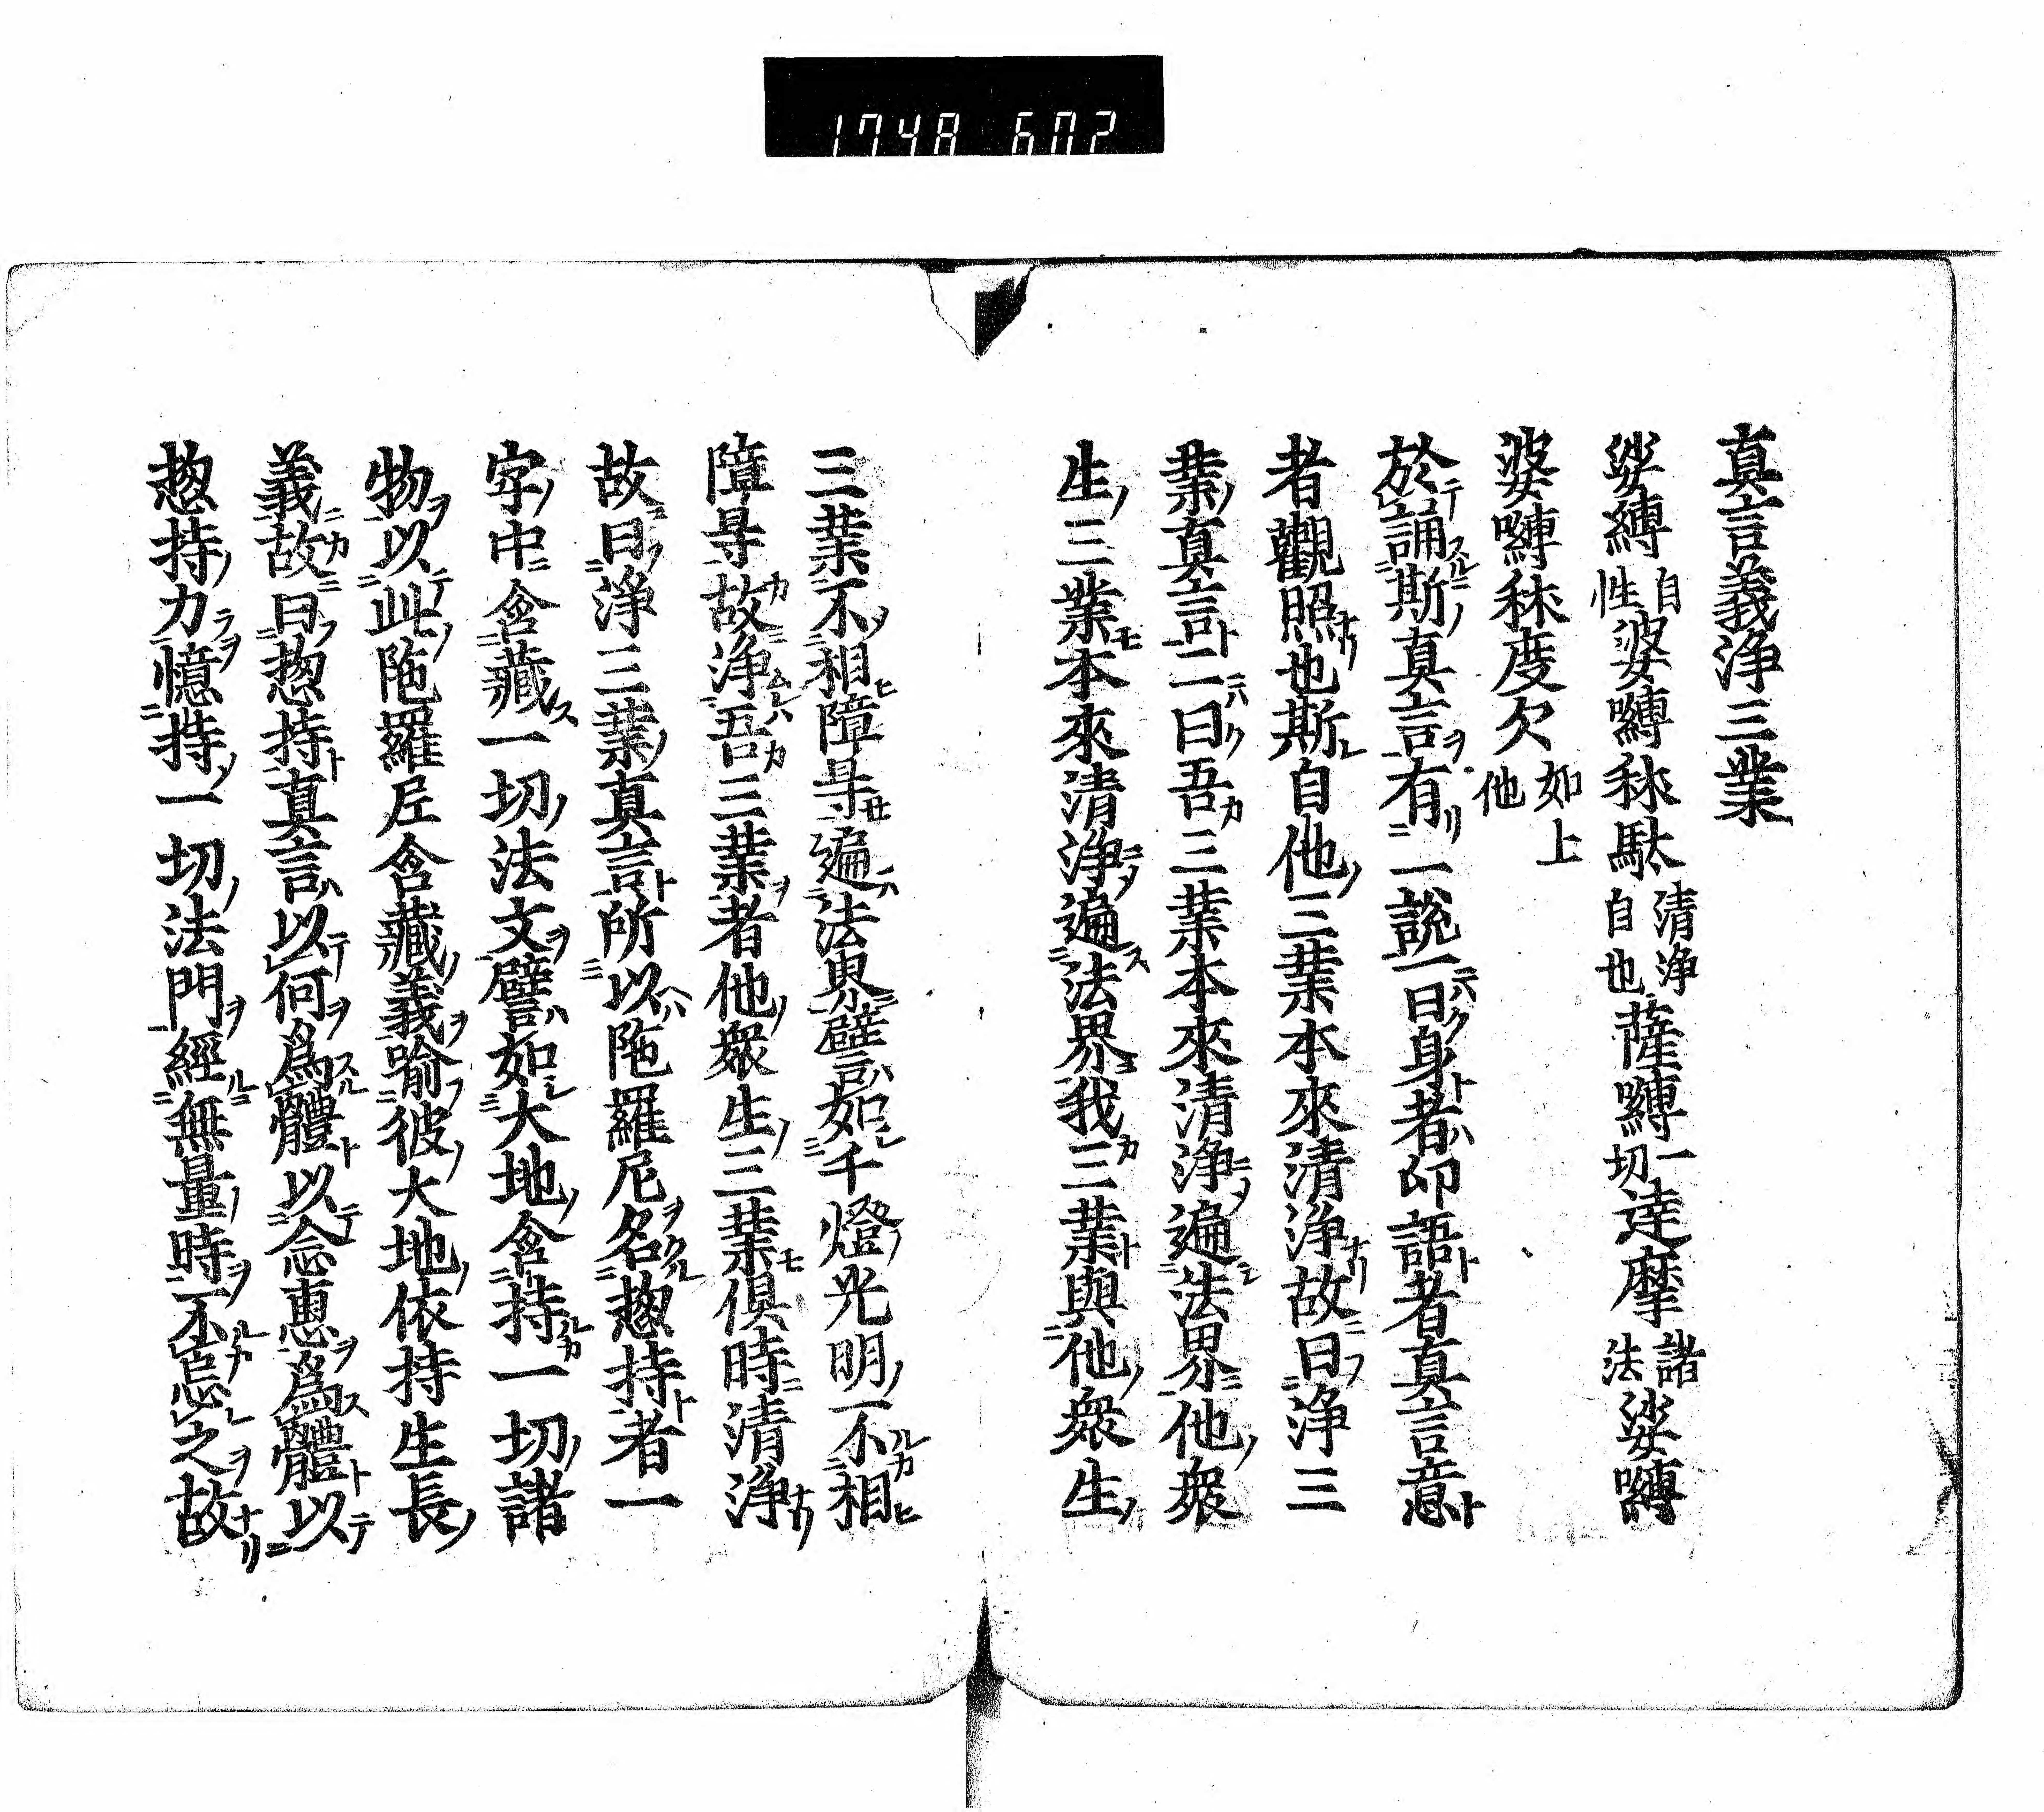 1748 602
真言義淨三業
娑縛自性婆嚩秫馱清浄自也薩嚩一切達摩諸法娑嚩
婆嚩秫度欠如上他
於誦斯真言有一説一曰身者印語者真言意
者觀照也斯自他三業本來清浄故曰浄三
業真言二曰吾三業本來清浄遍法界他衆
生三業本來清浄遍法界我三業與他衆生
三業不相障㝵遍法界譬如千燈光明不相
障㝵故浄吾三業者他衆生三業俱時清浄
故曰浄三業真言所以陁羅尼名惣持者一
字中含藏一切法文譬如大地含持一切諸
物以此陁羅尼含藏義喻彼大地依持生長
義故曰惣持真言以何為體以念惠為體以
惣持力憶持一切法門經無量時不忘之故